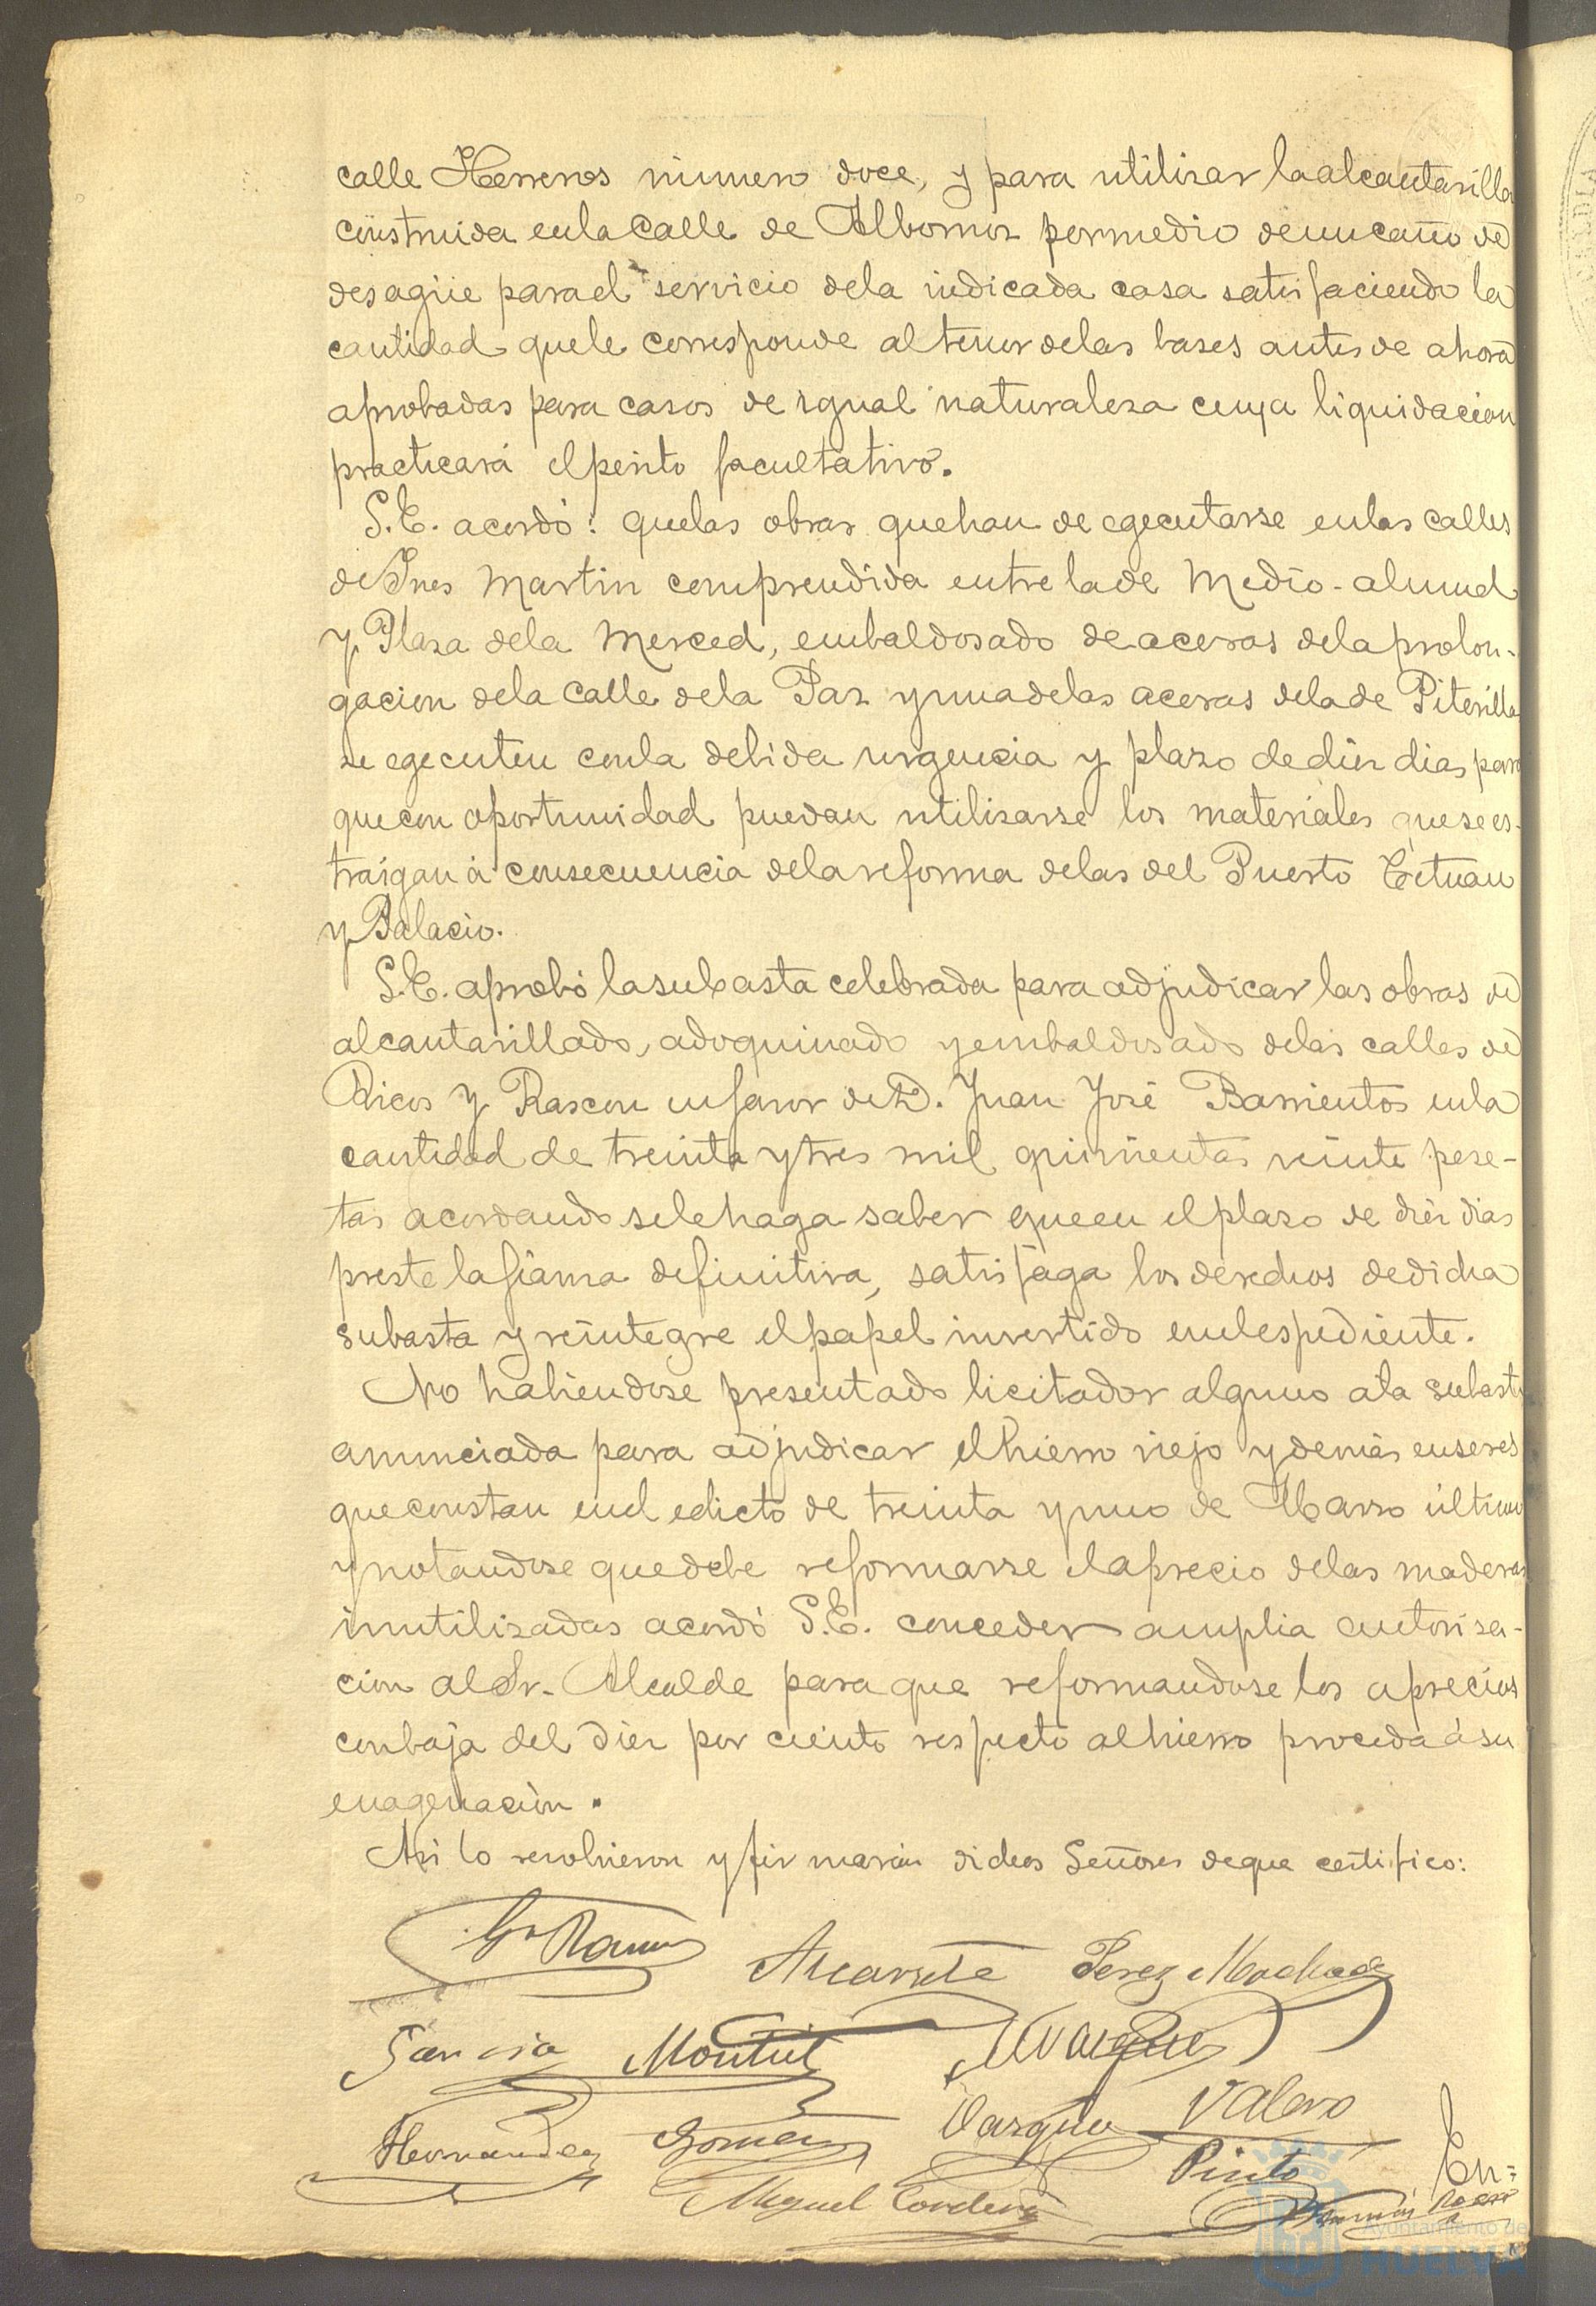 calle Herreros número doce, y para utilizar la alcantarilla
construida en la calle de Albornoz por medio de un caño de
desagüe para el servicio de la indicada casa satisfaciendo la
cantidad que le corresponde al tenor de las bases antes de ahora
aprobadas para casos de igual naturaleza cuya liquidacion
practicará el perito facultativo.
S.E. acordó: que las obras que han de egecutarse en las calles
de Ines Martin comprendida entre la de Medio-almud
y Plaza de la Merced, embaldosado de aceras de la prolon-
gacion de la calle de la Paz y una de las aceras de la de Piterilla
se egecuten con la debida urgencia y plazo de diez dias para
que con oportunidad puedan utilizarse los materiales que se es-
traigan á consecuencia de la reforma de las del Puerto Tetuan
y Palacio.
S.E. aprobó la subasta celebrada para adjudicar las obras de
alcantarillado, adoquinado y embaldosado de las calles de
Ricos y Rascon en favor de D. Juan José Barrientos en la
cantidad de treinta y tres mil quinientas veinte pese-
tas acordando se le haga saber que en el plazo de diez dias
preste la fianza definitiva, satisfaga los derechos de dicha
subasta y reintegre el papel invertido en el espediente.
No habiendose presentado licitador alguno a la subasta
anunciada para adjudicar el hierro viejo y demás enseres
que constan en el edicto de treinta y uno de Marzo último
y notandose que debe reformarse el aprecio de las maderas
inutilizadas acordó S.E. conceder amplia autoriza-
cion al Sr. Alcalde para que reformandose los aprecios
con baja del diez por ciento respecto al hierro proceda á su
enagenación.
Asi lo resolvieron y firmarán dichos Señores de que certifico:
Perez Machado
Garcia Montiel Marquez
Hernandez Gomez Vazquez Valero
Miguel Cordero Pinto
Ayuntamiento de
HUELVA